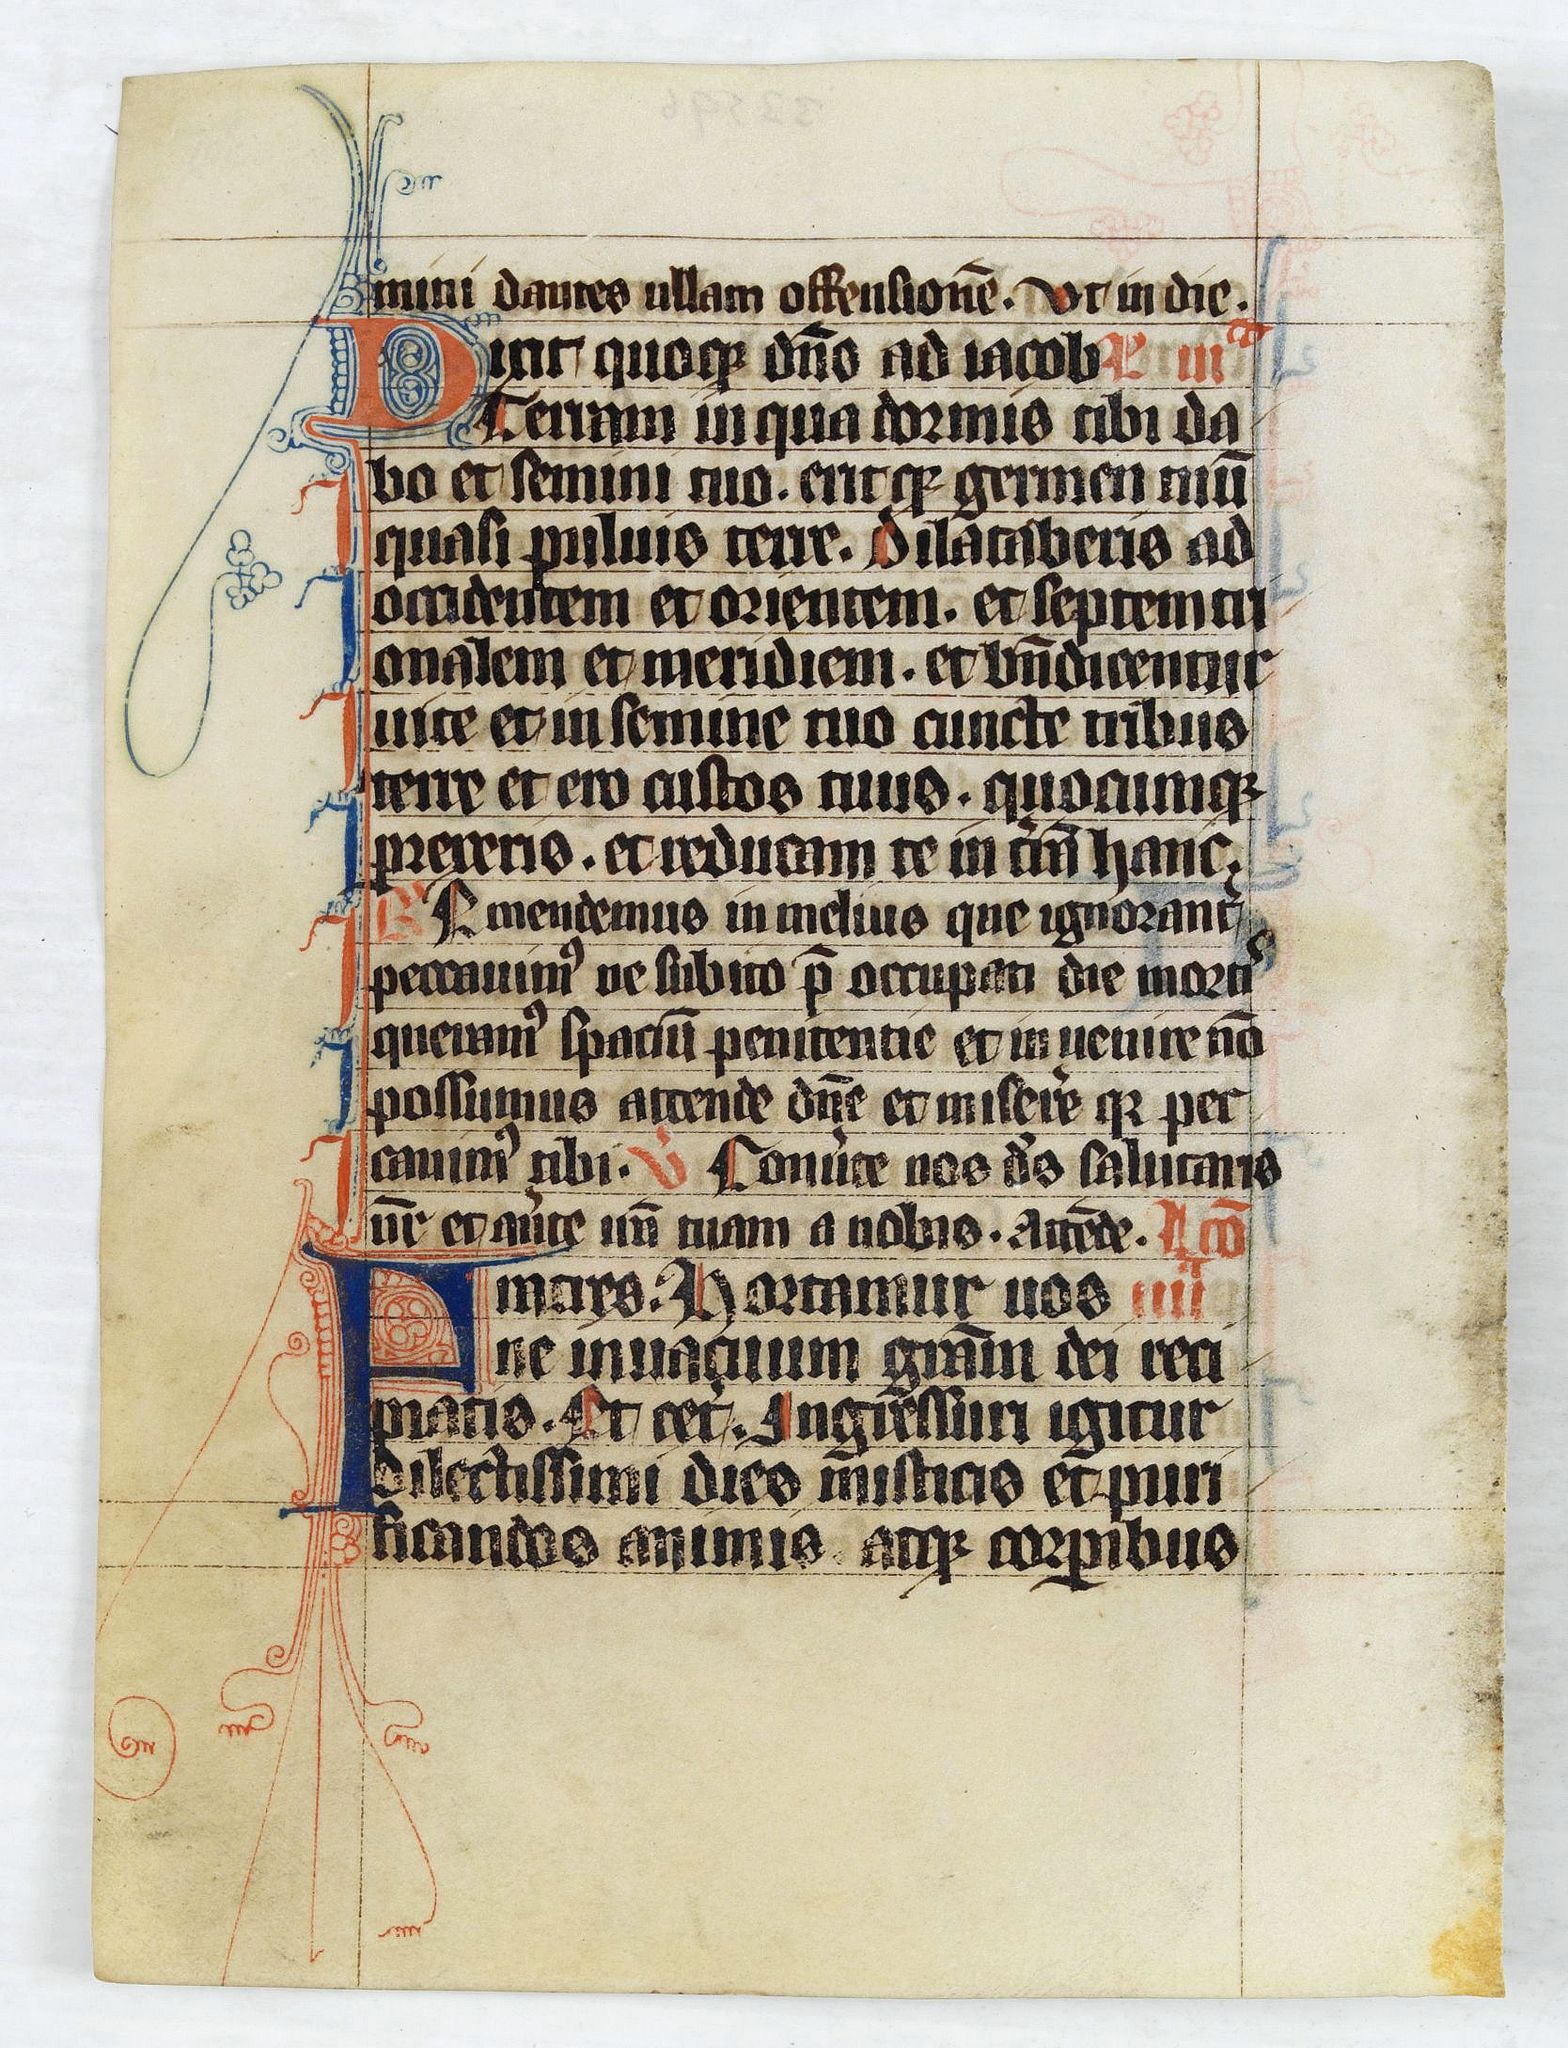 mini dantes ullam offensionē. Vt in die.
Dixit quoqꝫ dn̄s ad iacob L iiiᵃ
Terram in qua dormis tibi da
bo et semini tuo. eritqꝫ germen tuū
quasi puluis terre. Dilataberis ad
occidentem et orientem. et septemtri
onalem et meridiem. et bn̄dicentur
in te et in semine tuo cuncte tribus
terre et ero custos tuus. quocumqꝫ
prexeris. et reducam te in t̄rā hanc.
R Emendemus in melius que ignorant᷑
peccauimꝰ ne subito p̄ occupati die morti
s
queramꝰ spaciū penitentie et inuenire nō
possumus attende dn̄e et misere᷑ qꝛ pec
cauimꝰ tibi. V Conu᷑te nos ds̄ salutaris
nr̄ et au᷑te irā tuam a nobis. Attēde. L cō
Fratres. Hortamur uos iiii
ne in uacuum grām dei reci
piatis. Et cet᷑. Ingressuri igitur
dilectissimi dies misticis et puri
ficandos animis atqꝫ corpibus